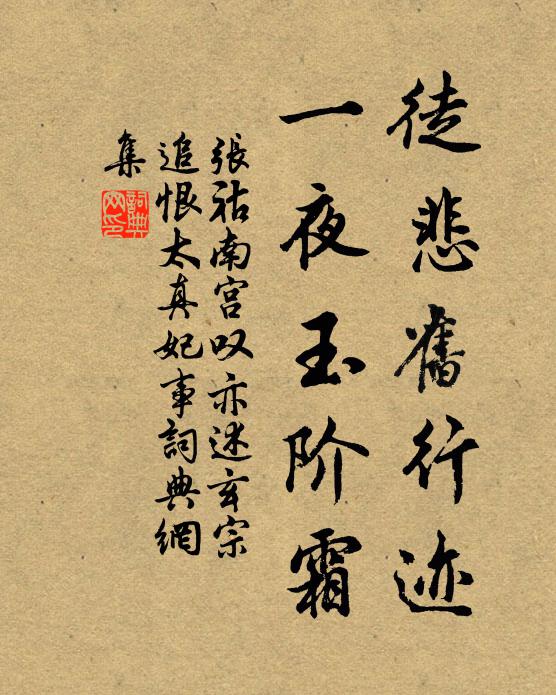 徒悲舊行迹
一夜玉阶霜
張祜南宫叹亦述玄宗
追恨太真妃事詞典網
集
詞典
网印